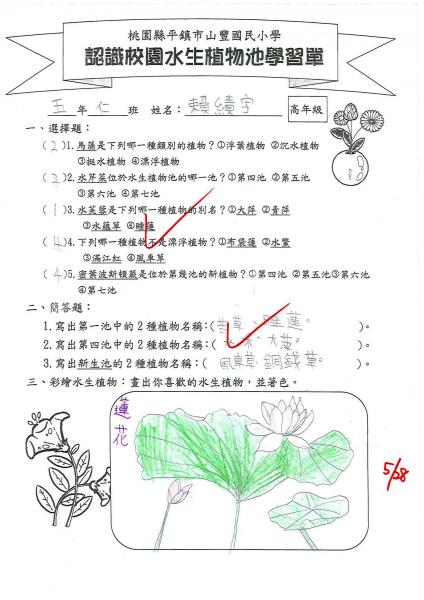 桃園縣平鎮市山豐國民小學
認識校園水生植物池學習單
五年仁班 姓名:賴續宇 高年級
一、選擇題:
(2)1.馬藻是下列哪一種類別的植物?①浮葉植物 ②沉水植物
③挺水植物 ④漂浮植物
(2)2.水芹菜位於水生植物池的哪一池?①第四池 ②第五池
③第六池 ④第七池
(1)3.水芙蓉是下列哪一種植物的別名?①大萍 ②青萍
③水蘊草 ④睡蓮
(4)4.下列哪一種植物不是漂浮植物?①布袋蓮 ②水鱉
③滿江紅 ④風車草
(4)5.密葉波斯頓蕨是位於第幾池的新植物?①第四池 ②第五池③第六池
④第七池
二、簡答題:
1.寫出第一池中的2種植物名稱:(苦草、睡蓮。)。
2.寫出第四池中的2種植物名稱:(水 、大萍。)。
3.寫出新生池的2種植物名稱:(風車草、銅錢草。)。
三、彩繪水生植物:畫出你喜歡的水生植物,並著色。
蓮花
5/28